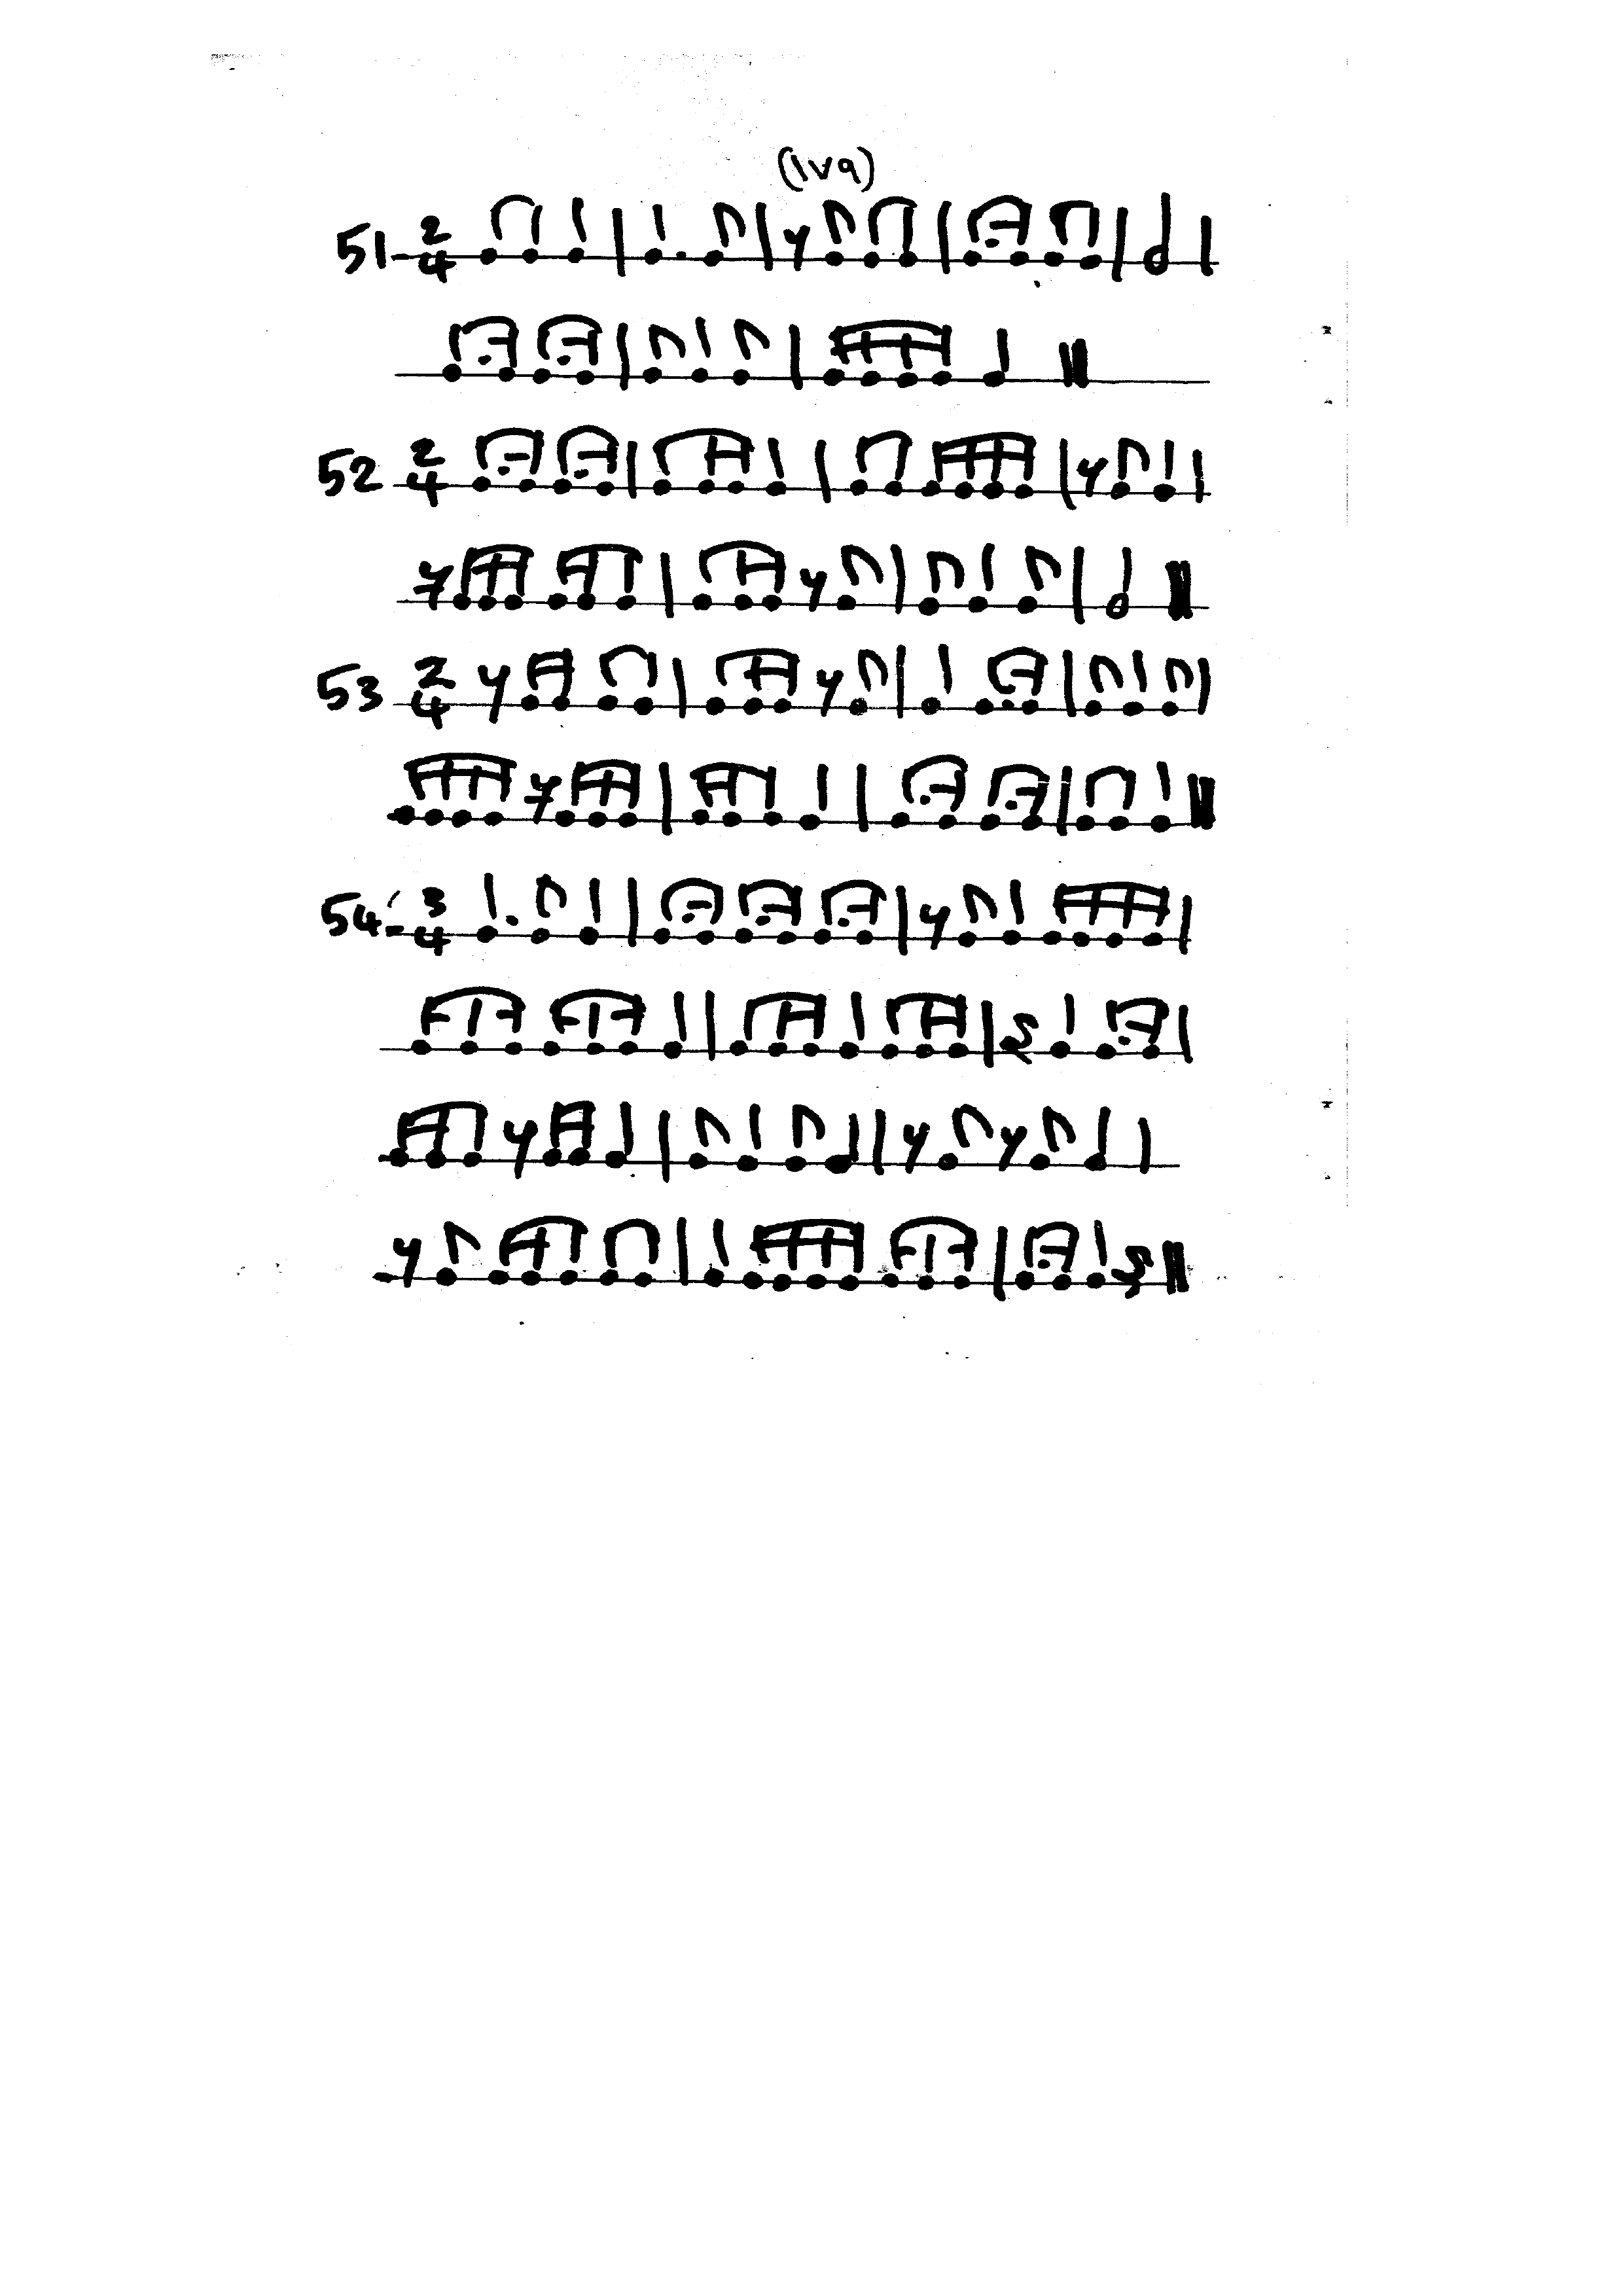 (1va)
51- 2/4
52 2/4
53 2/4
54- 3/4